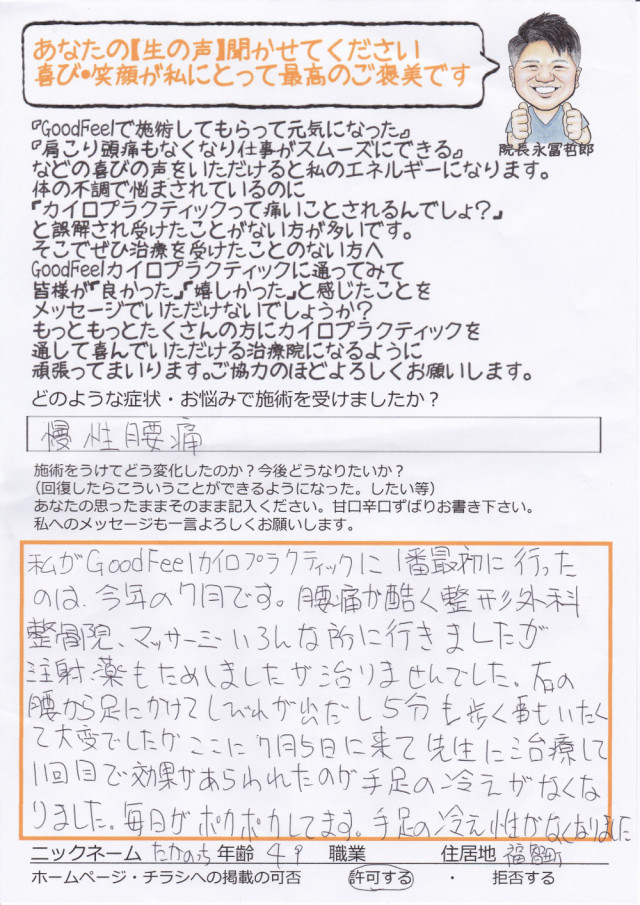 あなたの【生の声】聞かせてください
喜び•笑顔が私にとって最高のご褒美です
院長 永冨哲郎
『GoodFeelで施術してもらって元気になった』
『肩こり頭痛もなくなり仕事がスムーズにできる』
などの喜びの声をいただけると私のエネルギーになります。
体の不調で悩まされているのに
「カイロプラクティックって痛いことされるんでしょ？」
と誤解され受けたことがない方が多いです。
そこでぜひ治療を受けたことのない方へ
GoodFeelカイロプラクティックに通ってみて
皆様が「良かった」「嬉しかった」と感じたことを
メッセージでいただけないでしょうか？
もっともっとたくさんの方にカイロプラクティックを
通して喜んでいただける治療院になるように
頑張ってまいります。ご協力のほどよろしくお願いします。
どのような症状・お悩みで施術を受けましたか？
慢性腰痛
施術をうけてどう変化したのか？今後どうなりたいか？
（回復したらこういうことができるようになった。したい等）
あなたの思ったままそのまま記入ください。甘口辛口ずばりお書き下さい。
私へのメッセージも一言よろしくお願いします。
私がGoodFeelカイロプラクティックに1番最初に行った
のは、今年の7月です。腰痛が酷く整形外科
整骨院、マッサージいろんな所に行きましたが
注射、薬もためしましたが治りませんでした。右の
腰から足にかけてしびれが出だし5分も歩く事もいたく
て大変でしたがここに7月5日に来て先生に治療して
11回目で効果があらわれたのが手足の冷えがなくな
りました。毎日がポカポカしてます。手足の冷え性がなくなりました
ニックネーム たかのっち 年齢 49 職業 住居地 福智町
ホームページ・チラシへの掲載の可否 許可する ・ 拒否する